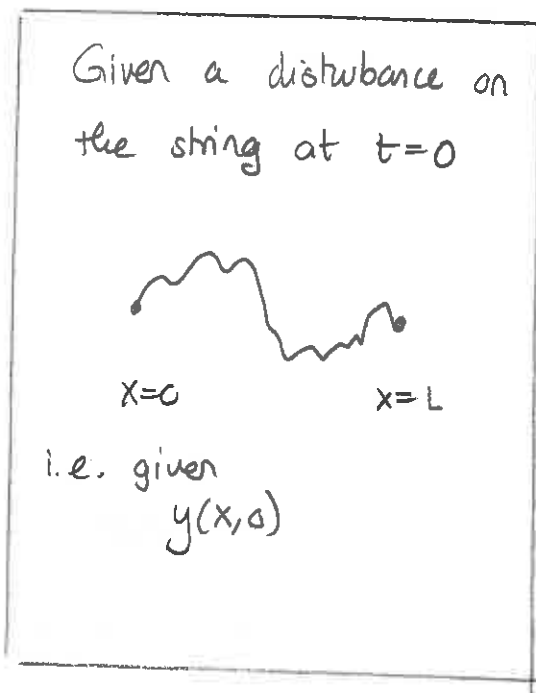 Given a disturbance on
the string at t=0
x=0 x=L
i.e. given
y(x,0)